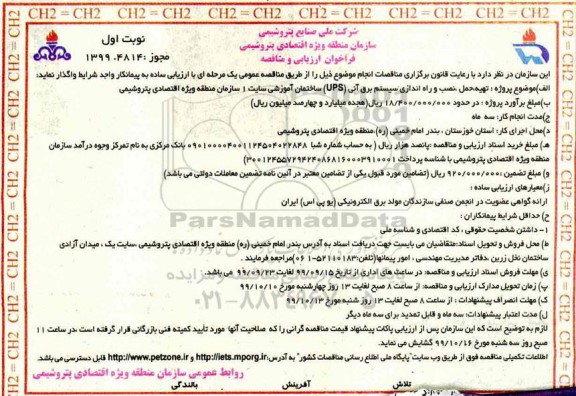 شرکت ملی صنایع پتروشیمی
سازمان منطقه ویژه اقتصادی پتروشیمی
فراخوان ارزیابی و مناقصه
نوبت اول
مجوز :۱۳۹۹.۴۸۱۴
این سازمان در نظر دارد با رعایت قانون برگزاری مناقصات انجام موضوع ذیل را از طریق مناقصه عمومی یک مرحله ای با ارزیابی ساده به پیمانکار واجد شرایط واگذار نماید:
الف)موضوع پروژه : تهیه،حمل ،نصب و راه اندازی سیستم برق آنی (UPS) ساختمان آموزشی سایت ۱ سازمان منطقه ویژه اقتصادی پتروشیمی
ب)مبلغ برآورد پروژه : در حدود ۱۸/۴۰۰/۰۰۰/۰۰۰ ریال(هجده میلیارد و چهارصد میلیون ریال)
ج)مدت انجام کار: سه ماه
د)محل اجرای کار: استان خوزستان ، بندر امام خمینی (ره)،منطقه ویژه اقتصادی پتروشیمی
هـ) مبلغ خرید اسناد ارزیابی و مناقصه :پانصد هزار ریال ( به حساب شماره شبا بانک مرکزی به نام تمرکز وجوه درآمد سازمان
منطقه ویژه اقتصادی پتروشیمی با شناسه پرداخت
و) مبلغ تضمین: ۹۲۰/۰۰۰/۰۰۰ ریال (تضامین مورد قبول یکی از تضامین معتبر در آئین نامه تضمین معاملات دولتی می باشد)
ز)معیارهای ارزیابی ساده :
ارائه گواهی عضویت در انجمن صنفی سازندگان مولد برق الکترونیکی (یو پی اس) ایران
ح)حداقل شرایط پیمانکاران :
۱- داشتن شخصیت حقوقی ، کد اقتصادی و شناسه ملی
ط) محل فروش و تحویل اسناد:متقاضیان می بایست جهت دریافت اسناد به آدرس بندر امام خمینی (ره) منطقه ویژه اقتصادی پتروشیمی ،سایت یک ، میدان آزادی
ساختمان نخل زرین ،دفاتر مدیریت مهندسی ، امور پیمانها(تلفن:۵۲۱۱۰۱۸۳-۰۶۱)مراجعه فرمایند .
ی) مهلت فروش اسناد ارزیابی و مناقصه: در ساعت های اداری از تاریخ ۹۹/۰۹/۱۵ لغایت ۹۹/۰۹/۲۳ می باشد.
پ) زمان تحویل مدارک ارزیابی و مناقصه: از ساعت ۸ صبح لغایت ۱۳ روز چهارشنبه مورخ ۹۹/۱۰/۱۰
ک) مهلت انصراف پیشنهادات : از ساعت ۸ صبح لغایت ۱۳ روز شنبه مورخ ۹۹/۱۰/۱۳
ل) مدت اعتبار پیشنهادات: سه ماه و قابل تمدید برای سه ماه دیگر
لازم به توضیح است که این سازمان پس از ارزیابی پاکات پیشنهاد قیمت مناقصه گرانی را که صلاحیت آنها مورد تأیید کمیته فنی بازرگانی قرار گرفته است ،در ساعت ۱۱
صبح روز سه شنبه مورخ ۹۹/۱۰/۱۶ گشایش می نماید.
اطلاعات تکمیلی مناقصه فوق از طریق وب سایت"پایگاه ملی اطلاع رسانی مناقصات کشور" به آدرس:http://iets.mporg.ir و http://www.petzone.ir قابل دسترسی می باشد.
روابط عمومی سازمان منطقه ویژه اقتصادی پتروشیمی
تلاش آفرینش بالندگی
ParsNamadData
۰۲۱-۸۸۳۴۹۶۷۰